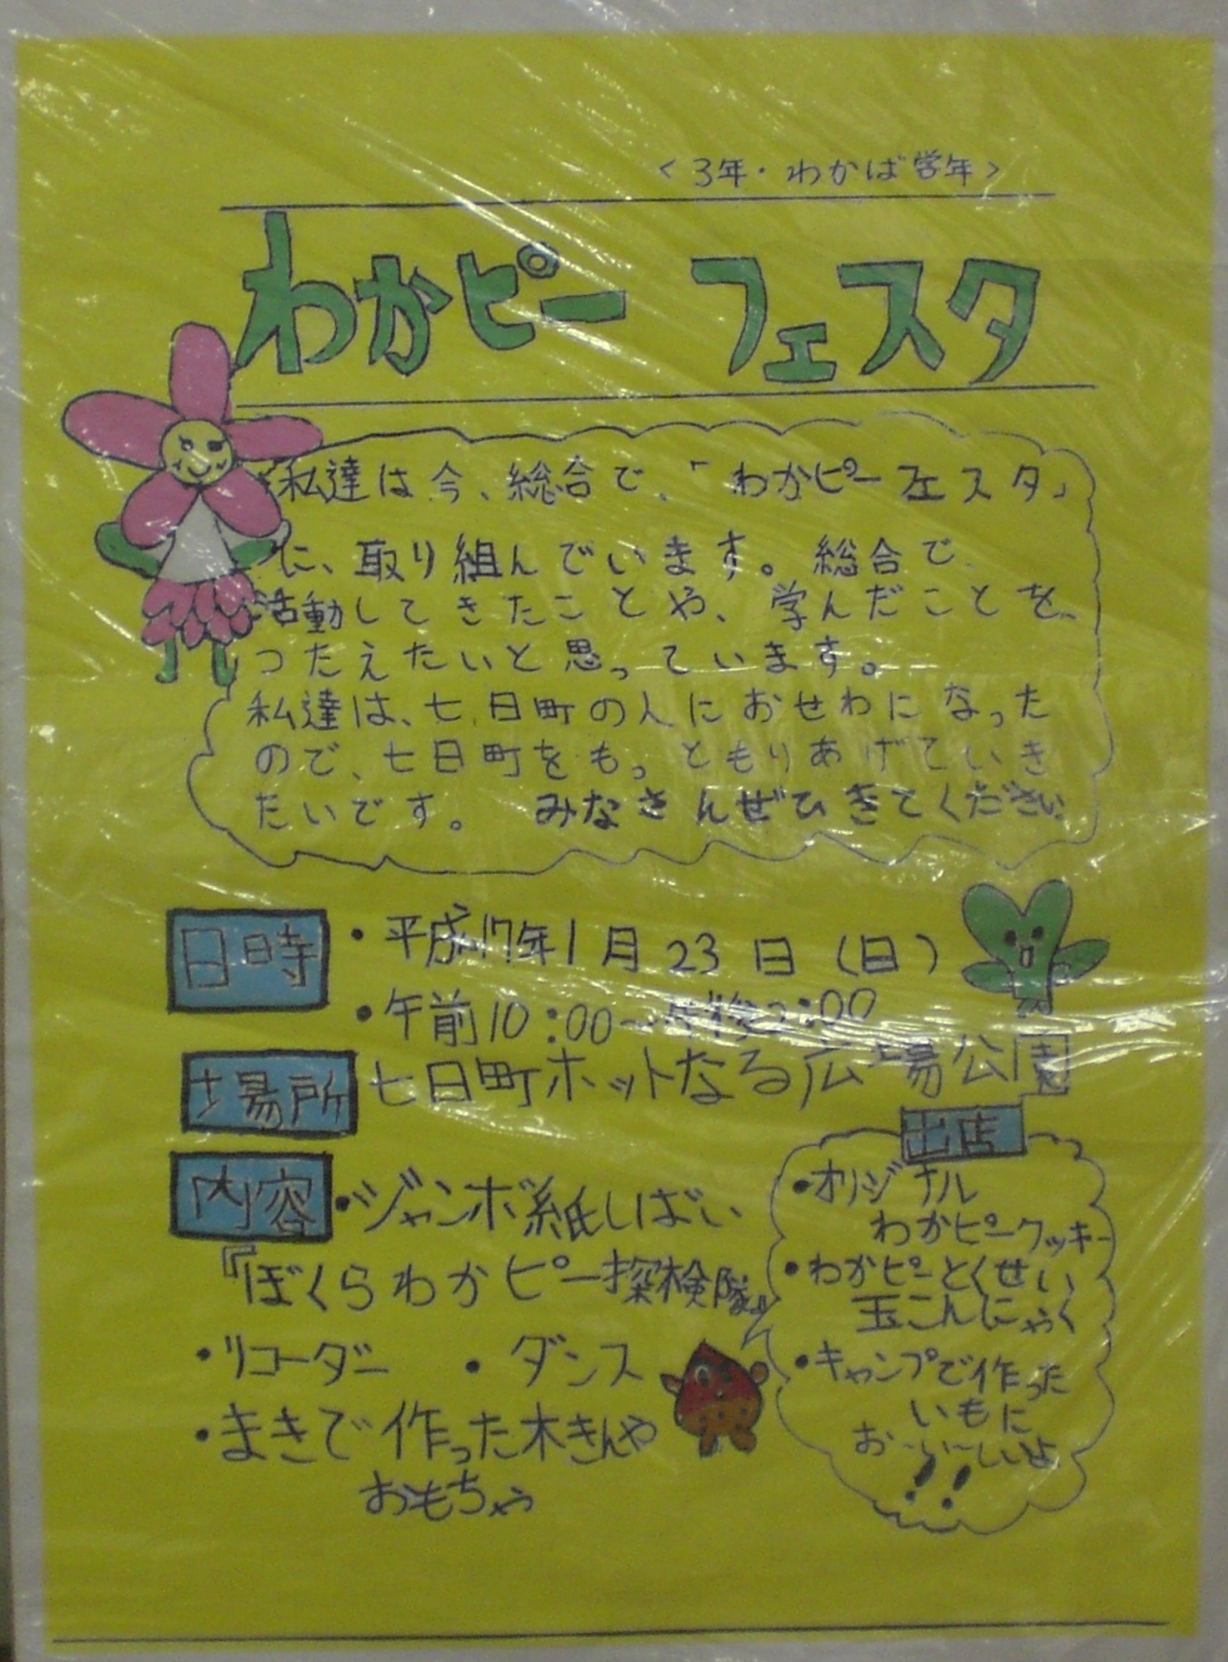 <3年・わかば学年>
わかピー フェスタ
私達は今、総合で、「わかピーフェスタ」
に、取り組んでいます。総合で、
活動してきたことや、学んだことを、
つたえたいと思っています。
私達は、七日町の人におせわになった
ので、七日町をもっともりあげていき
たいです。 みなさんぜひきてください
日時 ・平成17年1月23日(日)
・午前10:00〜午後2:00
場所 七日町ホットなる広場公園
内容 ・ジャンボ紙しばい
『ぼくらわかピー探検隊』
・リコーダー ・ダンス
・まきで作った木きんや
おもちゃ
出店
・オリジナル
わかピークッキー
・わかピーとくせい
玉こんにゃく
・キャンプで作った
いもに
お〜い〜しいよ
!!